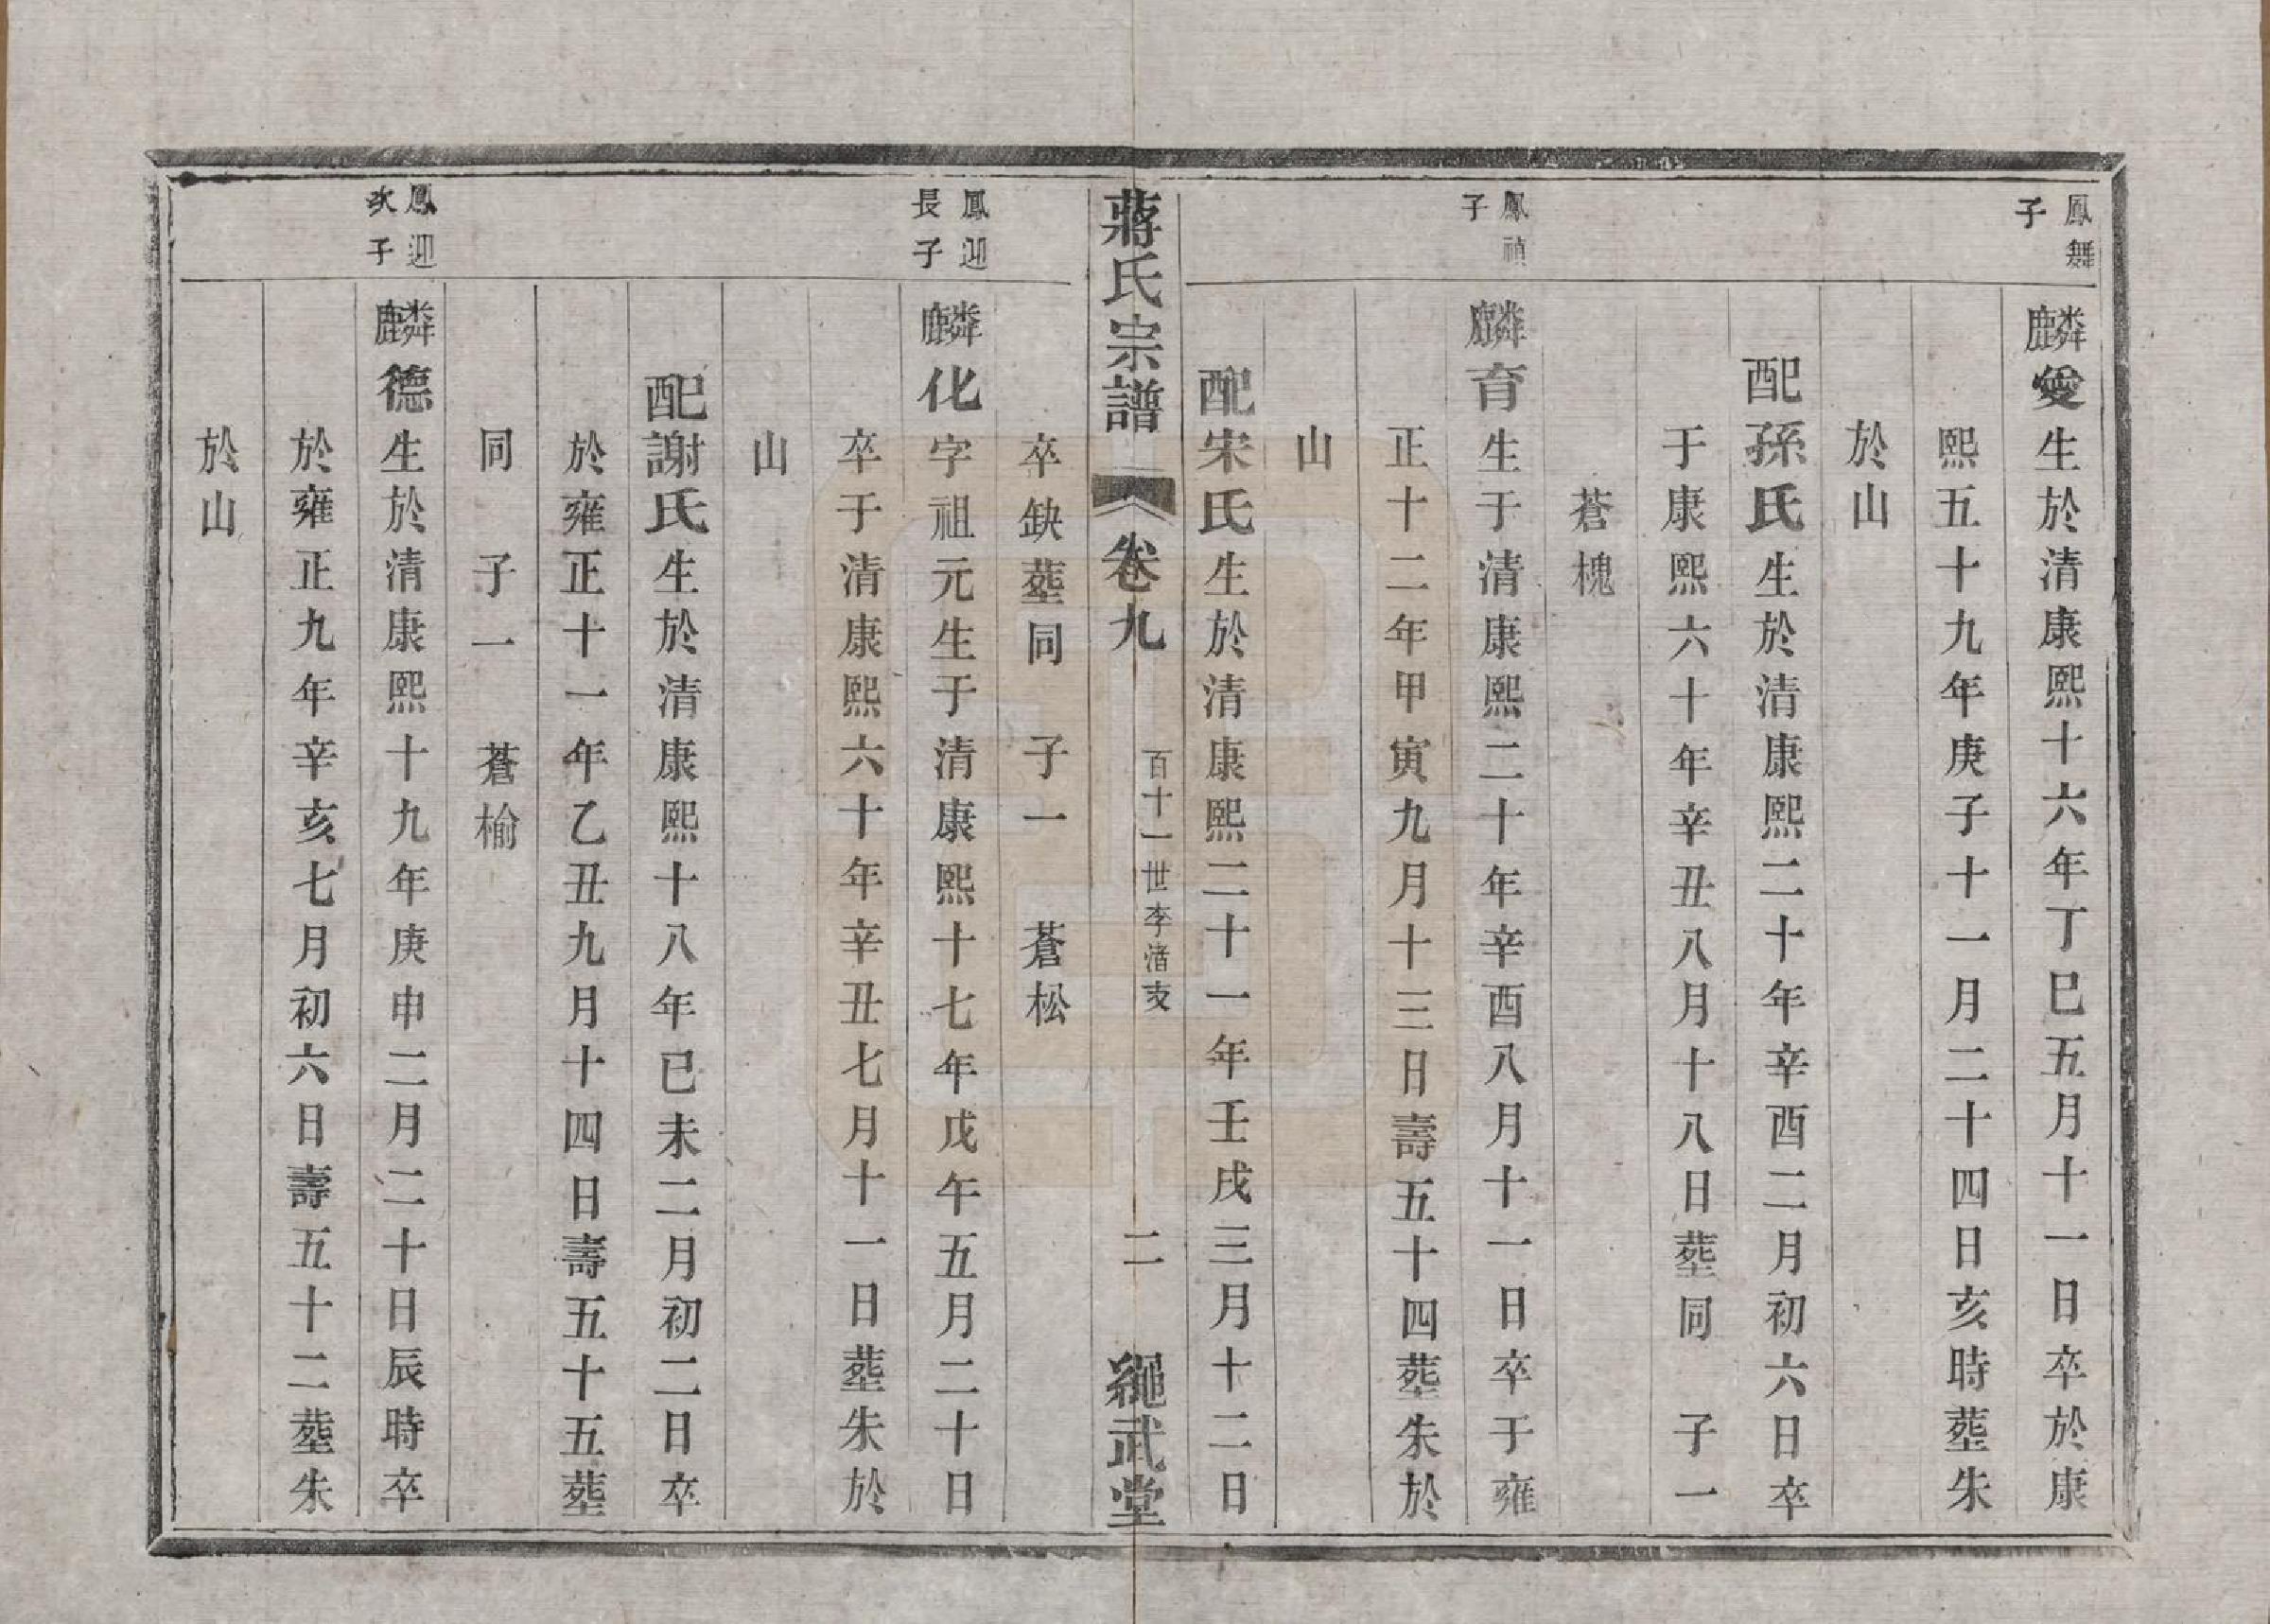 鳳舞
子
麟愛生於清康熙十六年丁巳五月十一日卒於康
熙五十九年庚子十一月二十四日亥時塟朱
於山
配孫氏生於清康熙二十年辛酉二月初六日卒
于康熙六十年辛丑八月十八日塟同 子一
蒼槐
鳳禎
子
麟育生于清康熙二十年辛酉八月十一日卒于雍
正十二年甲寅九月十三日壽五十四塟朱於
山
配宋氏生於清康熙二十一年壬戌三月十二日
蔣氏宗譜 卷九 百十一世李渚支 二 繩武堂
卒缺塟同 子一 蒼松
鳳迎
長子
麟化字祖元生于清康熙十七年戊午五月二十日
卒于清康熙六十年辛丑七月十一日塟朱於
山
配謝氏生於清康熙十八年已未二月初二日卒
於雍正十一年乙丑九月十四日壽五十五塟
同 子一 蒼榆
鳳迎
次子
麟德生於清康熙十九年庚申二月二十日辰時卒
於雍正九年辛亥七月初六日壽五十二塟朱
於山